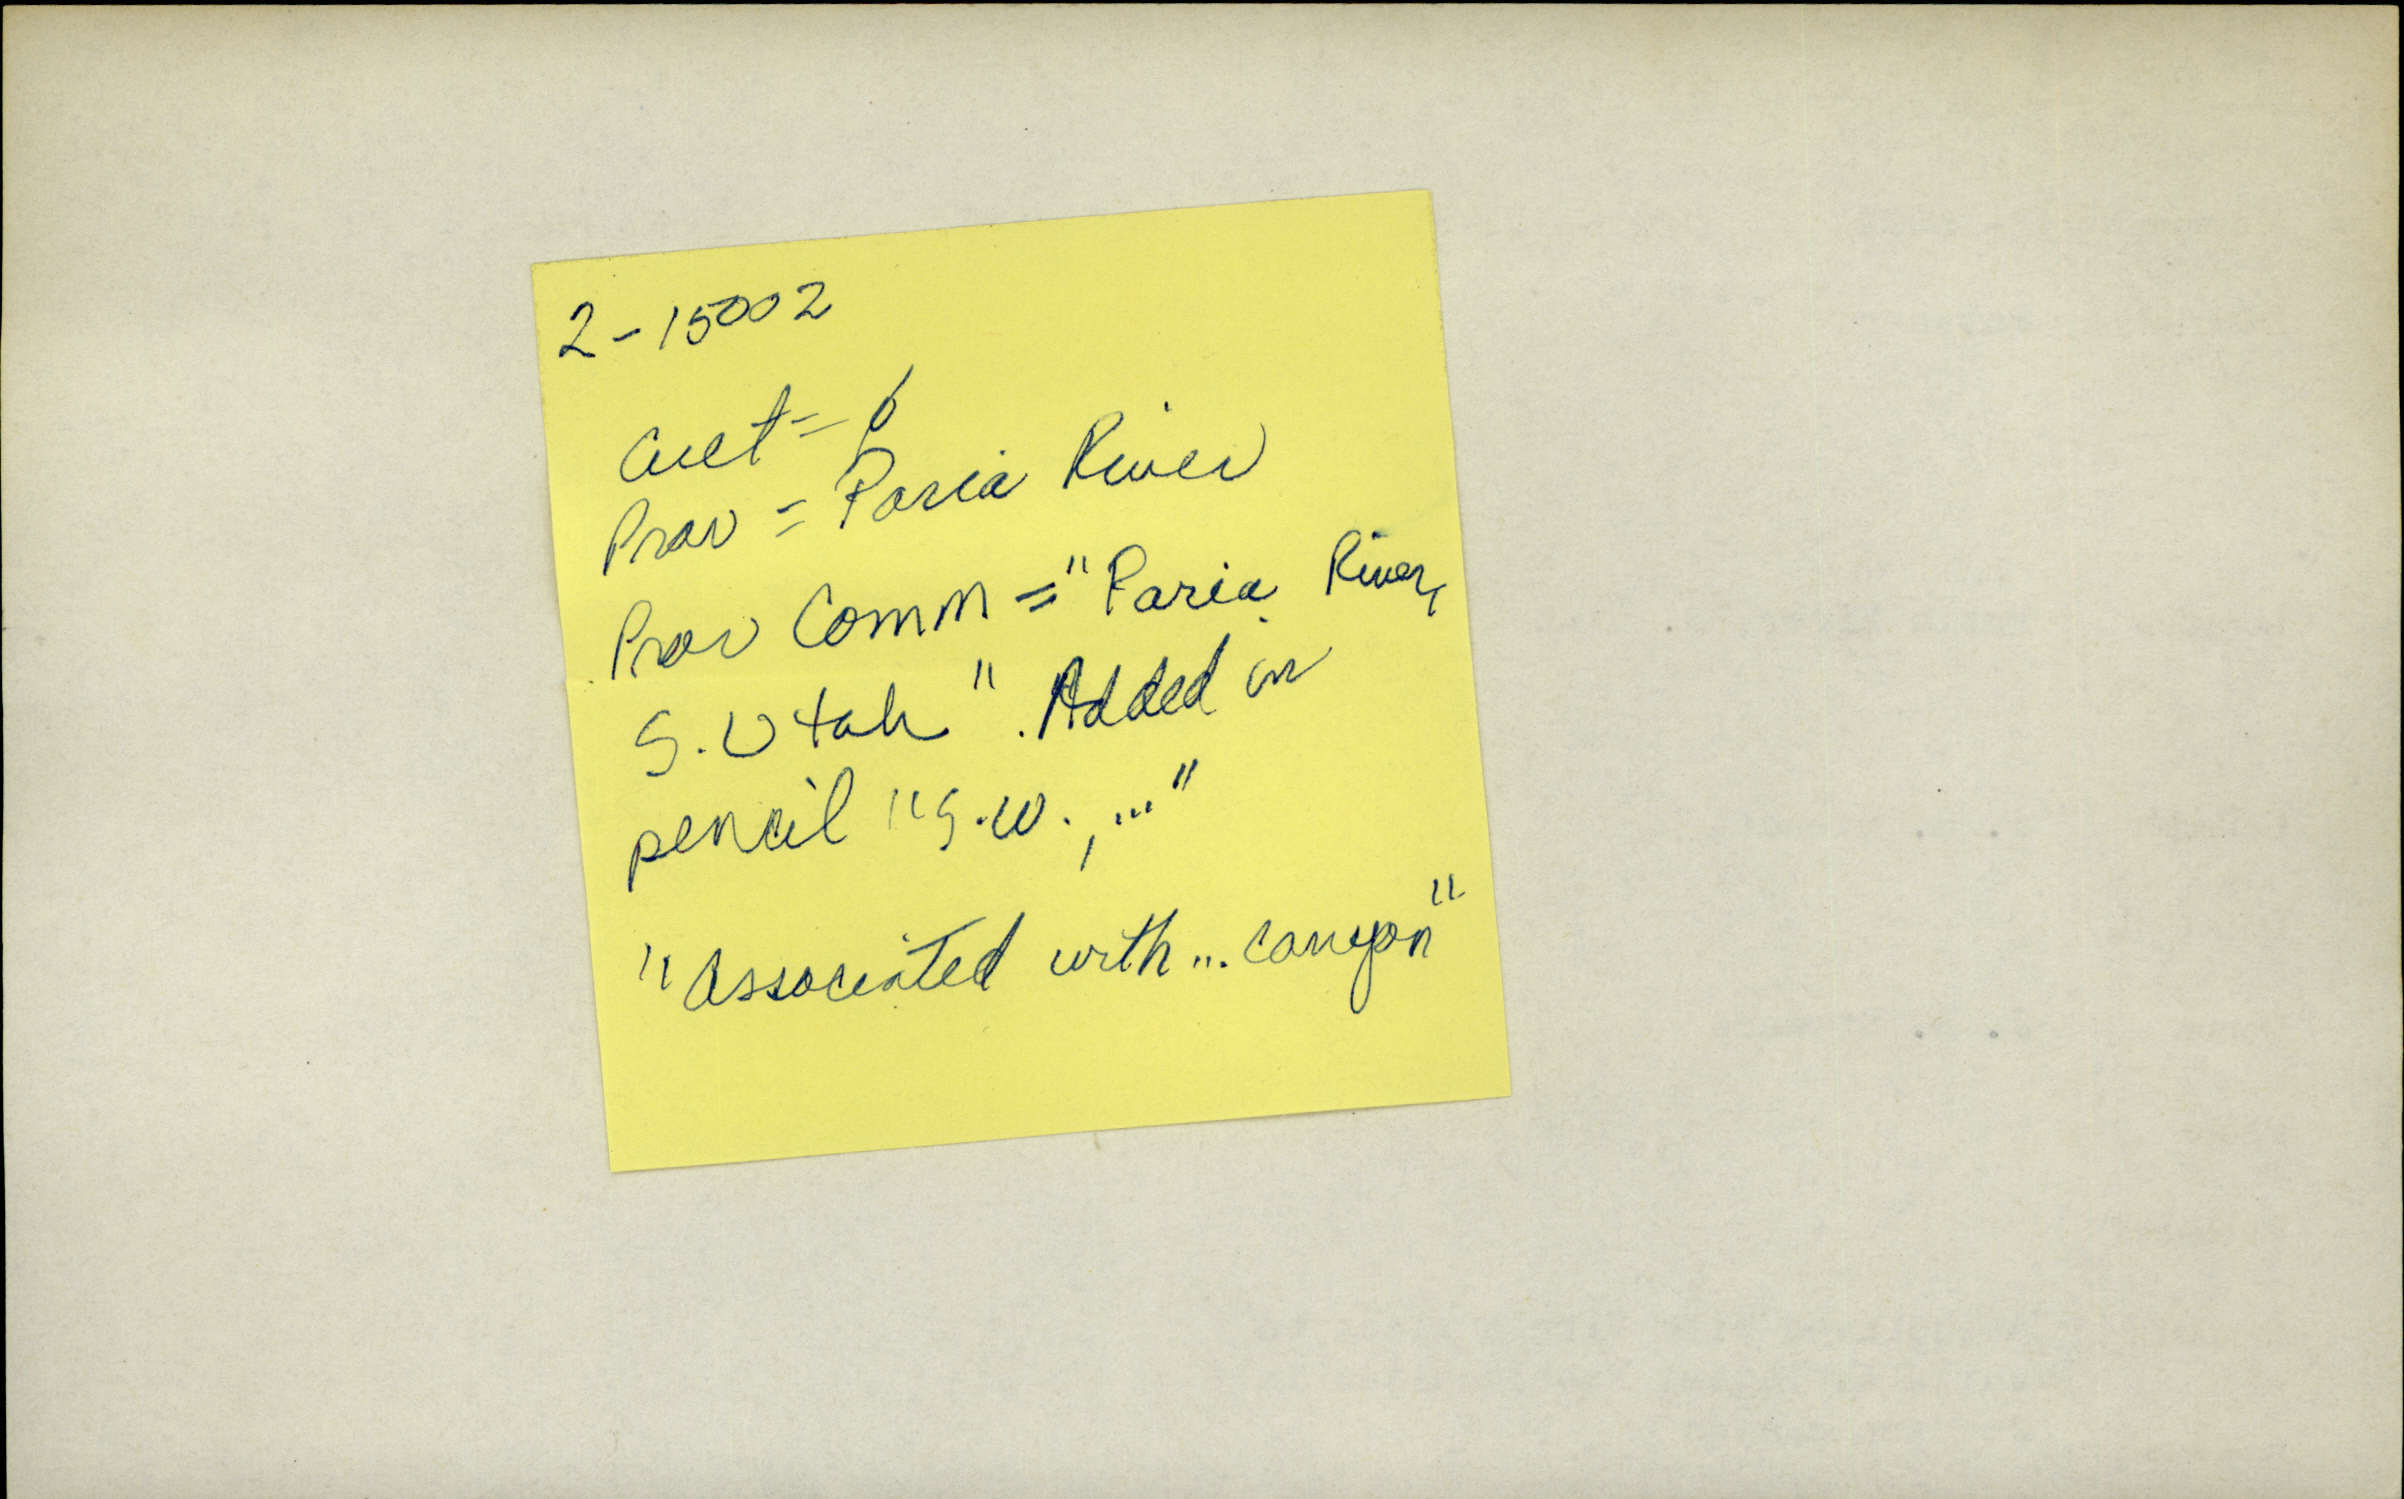 2-15002
Cult = ∅
Prov = Paria River
Prov Comm = "Paria River,
S. Utah". Added in
pencil "S.W., ..."
"Associated with ... canyon"